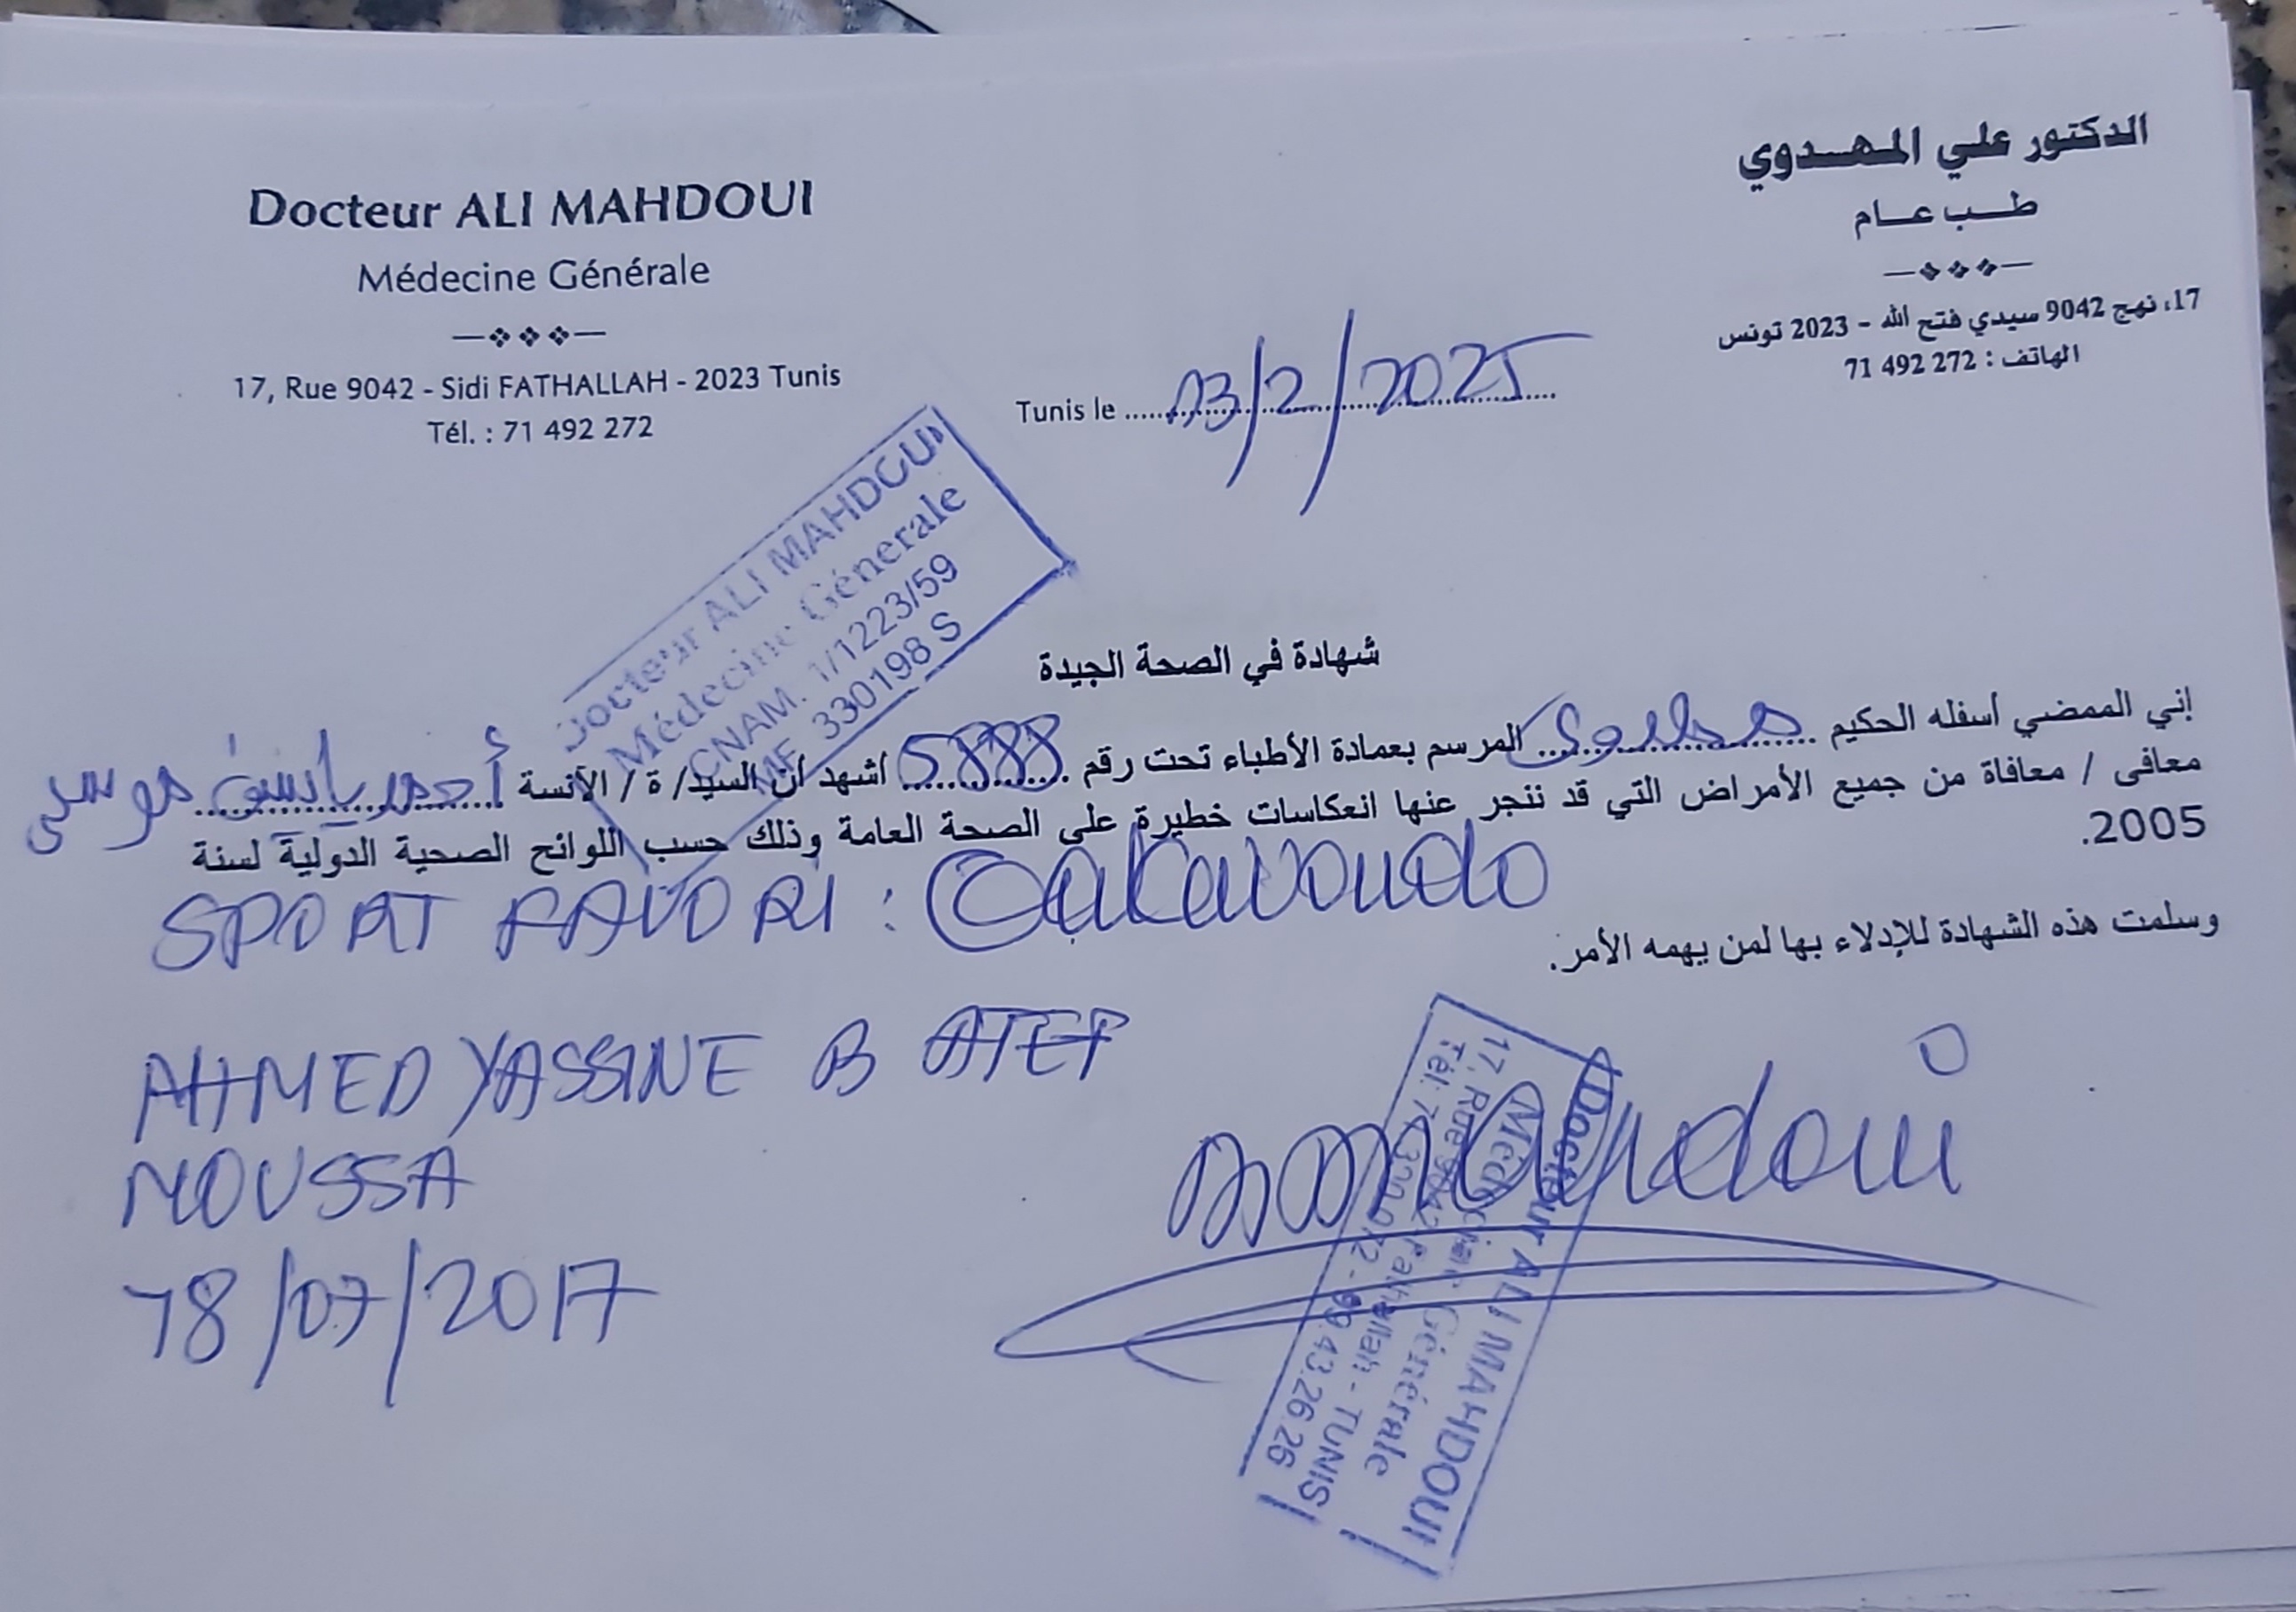 Docteur ALI MAHDOUI
Médecine Générale
17, Rue 9042 - Sidi FATHALLAH - 2023 Tunis
Tél. : 71 492 272
الدكتور علي المهدوي
طب عام
17، نهج 9042 سيدي فتح الله - 2023 تونس
الهاتف : 272 492 71
Tunis le 03/2/2025
Docteur ALI MAHDOUI
Médecine Génerale
CNAM. 1/1223/59
MF 330198 S
شهادة في الصحة الجيدة
إني الممضي أسفله الحكيم مهدوي المرسم بعمادة الأطباء تحت رقم 5888 أشهد أن السيد/ ة / الآنسة أحمد ياسين موسى
معافى / معافاة من جميع الأمراض التي قد ننجر عنها انعكاسات خطيرة على الصحة العامة وذلك حسب اللوائح الصحية الدولية لسنة
2005.
SPORT FAVORI :
وسلمت هذه الشهادة للإدلاء بها لمن يهمه الأمر.
AHMED YASSINE B ATEF
MOUSSA
18/07/2017
Mahdoui
Docteur ALI MAHDOUI
Médecine Générale
17, Rue 9042 Fathallah - TUNIS
Tél: 43.26.26